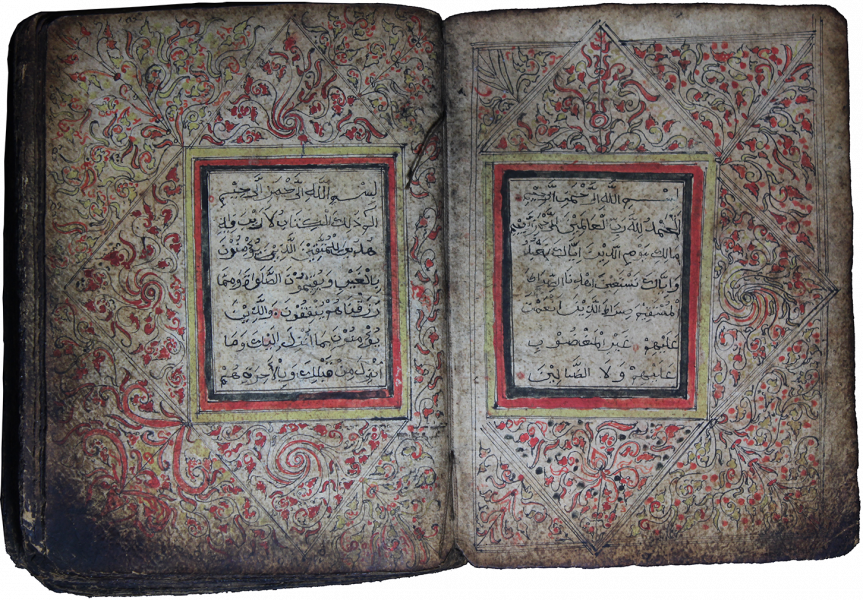 بسم الله الرحمن الرحيم
الحمد لله رب العالمين الرحمن الرحيم
مالك يوم الدين اياك نعبد
واياك نستعين اهدنا الصراط
المستقيم صراط الذين انعمت
عليهم غير المغضوب
عليهم ولا الضالين
بسم الله الرحمن الرحيم
الم ذلك الكتاب لا ريب فيه
هدى للمتقين الذين يؤمنون
بالغيب ويقيمون الصلوة ومما
رزقناهم ينفقون والذين
يؤمنون بما أنزل اليك وما
انزل من قبلك وبالآخرة هم